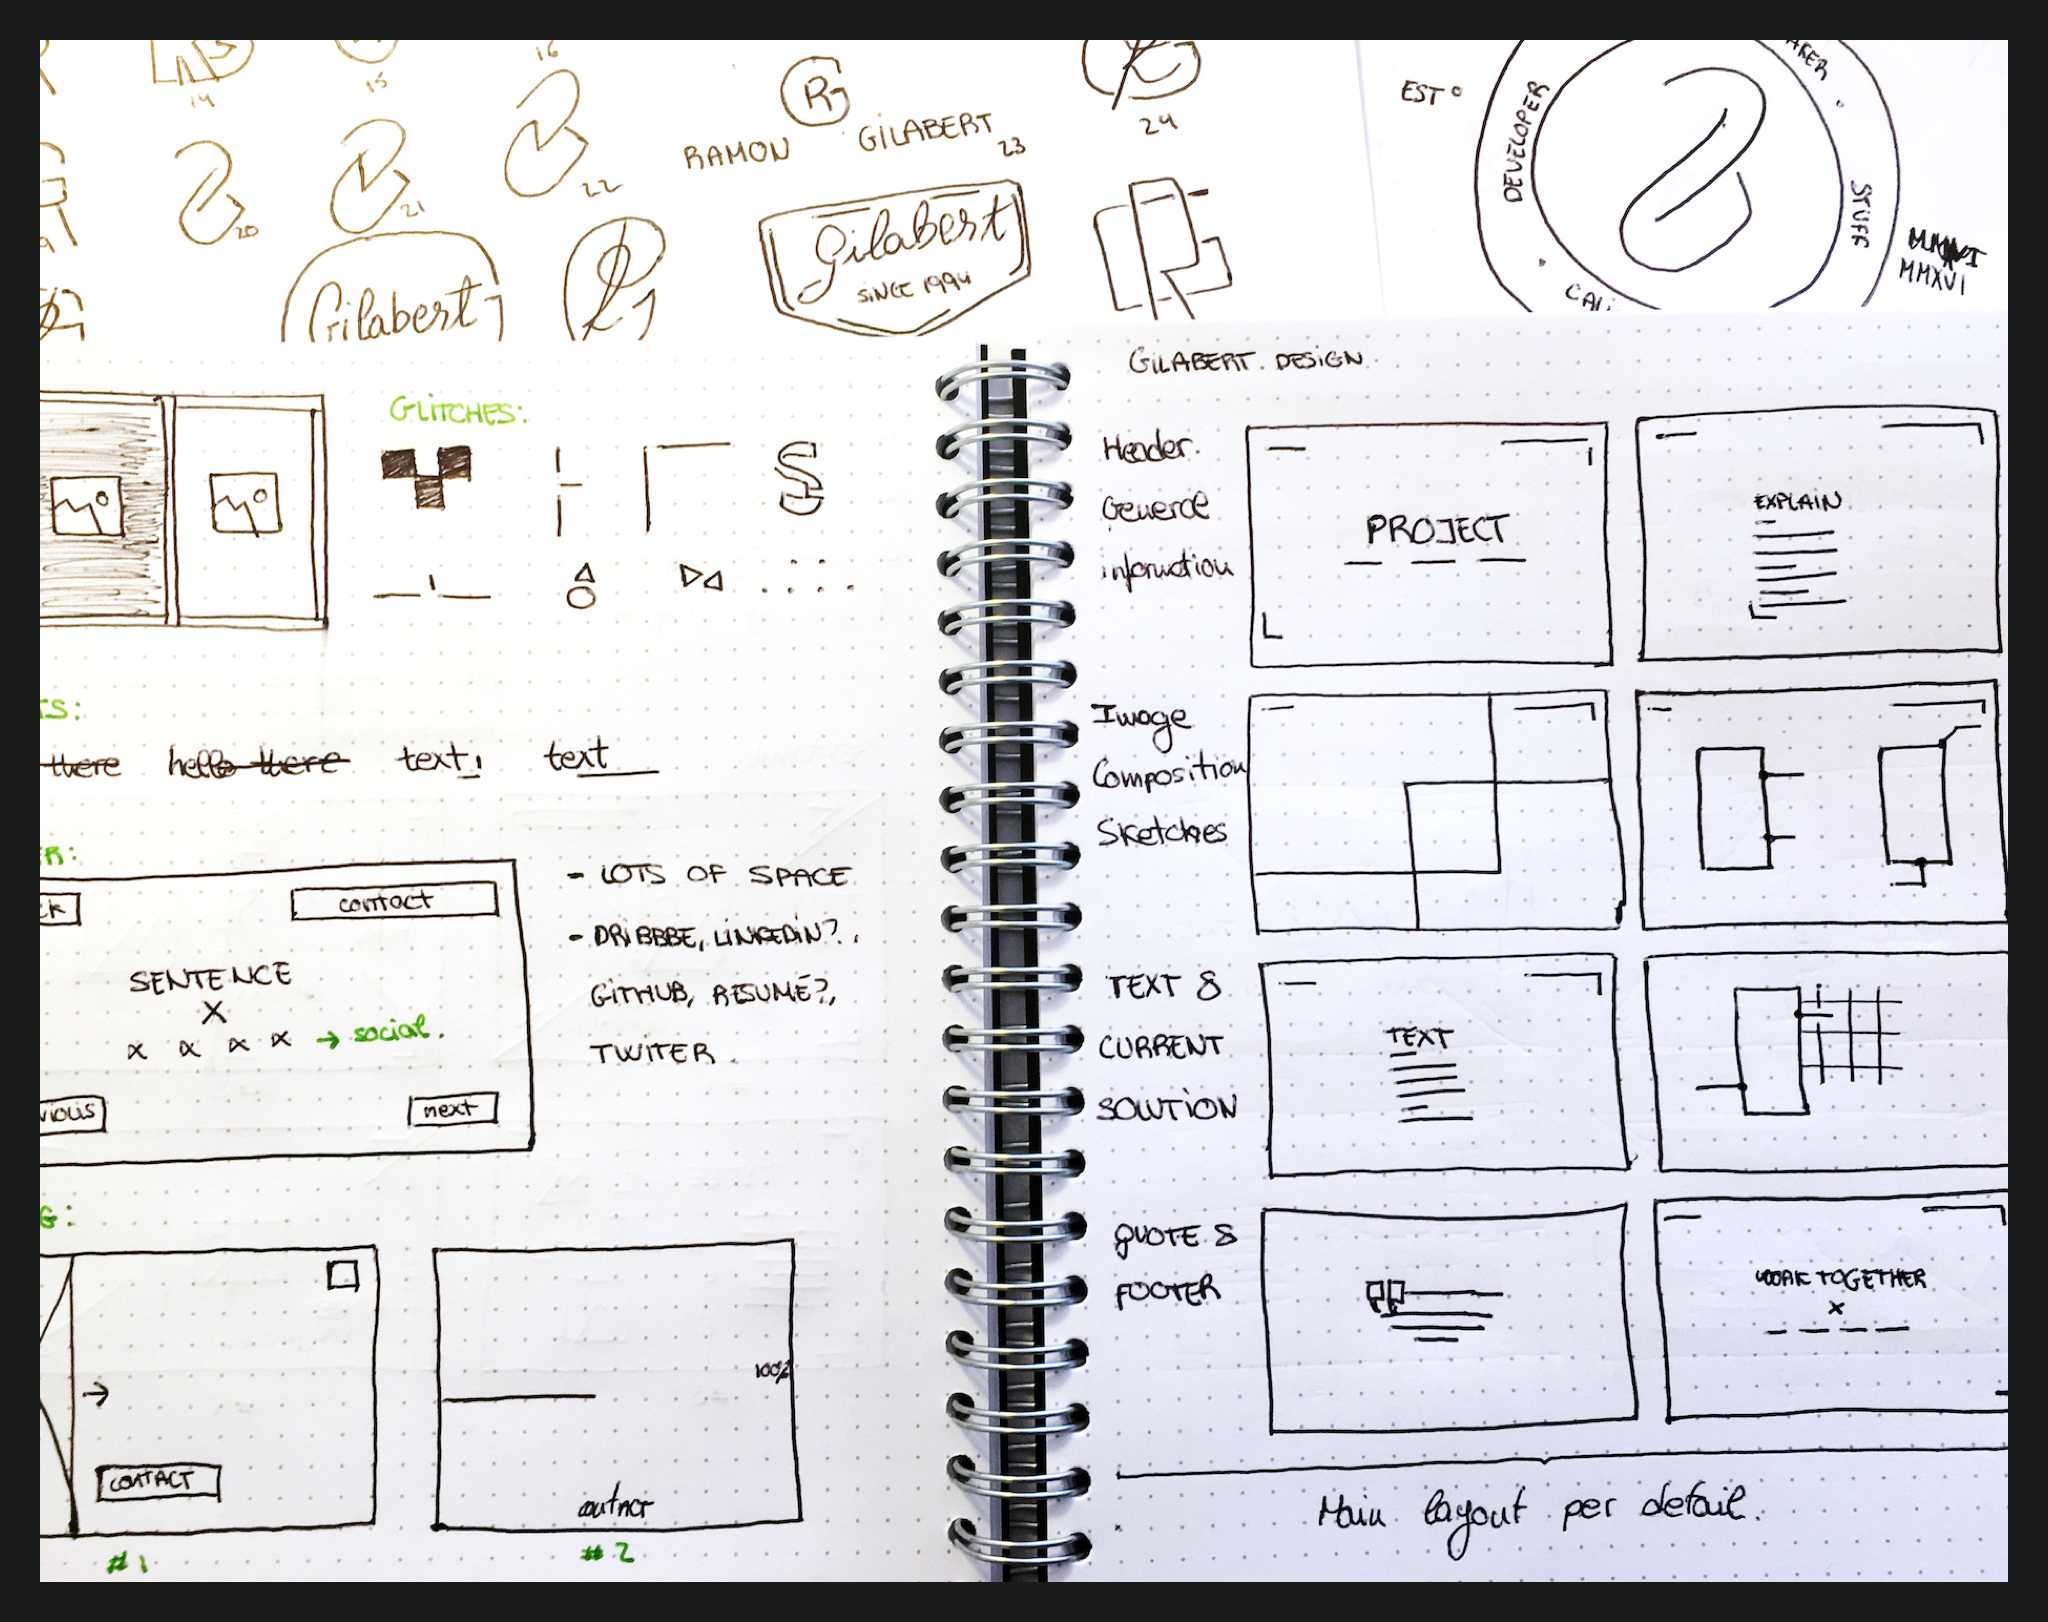 14
15
16
20
21
22
RAMON
R
GILABERT
23
24
Gilabert
Gilabert
SINCE 1994
EST
DEVELOPER
STUFF
MMXVI
GLITCHES:
S
there
hello there
text
text
contact
SENTENCE
X
x x x x → social.
next
- LOTS OF SPACE
- DRIBBBE, LINKEDIN?,
GITHUB, RESUMÉ?,
TWITER.
CONTACT
#1
100%
contact
#2
GILABERT. DESIGN
Header.
General
information
PROJECT
EXPLAIN
Image
Composition
Sketches
TEXT &
CURRENT
SOLUTION
TEXT
QUOTE &
FOOTER
WORK TOGETHER
x
Main layout per detail.